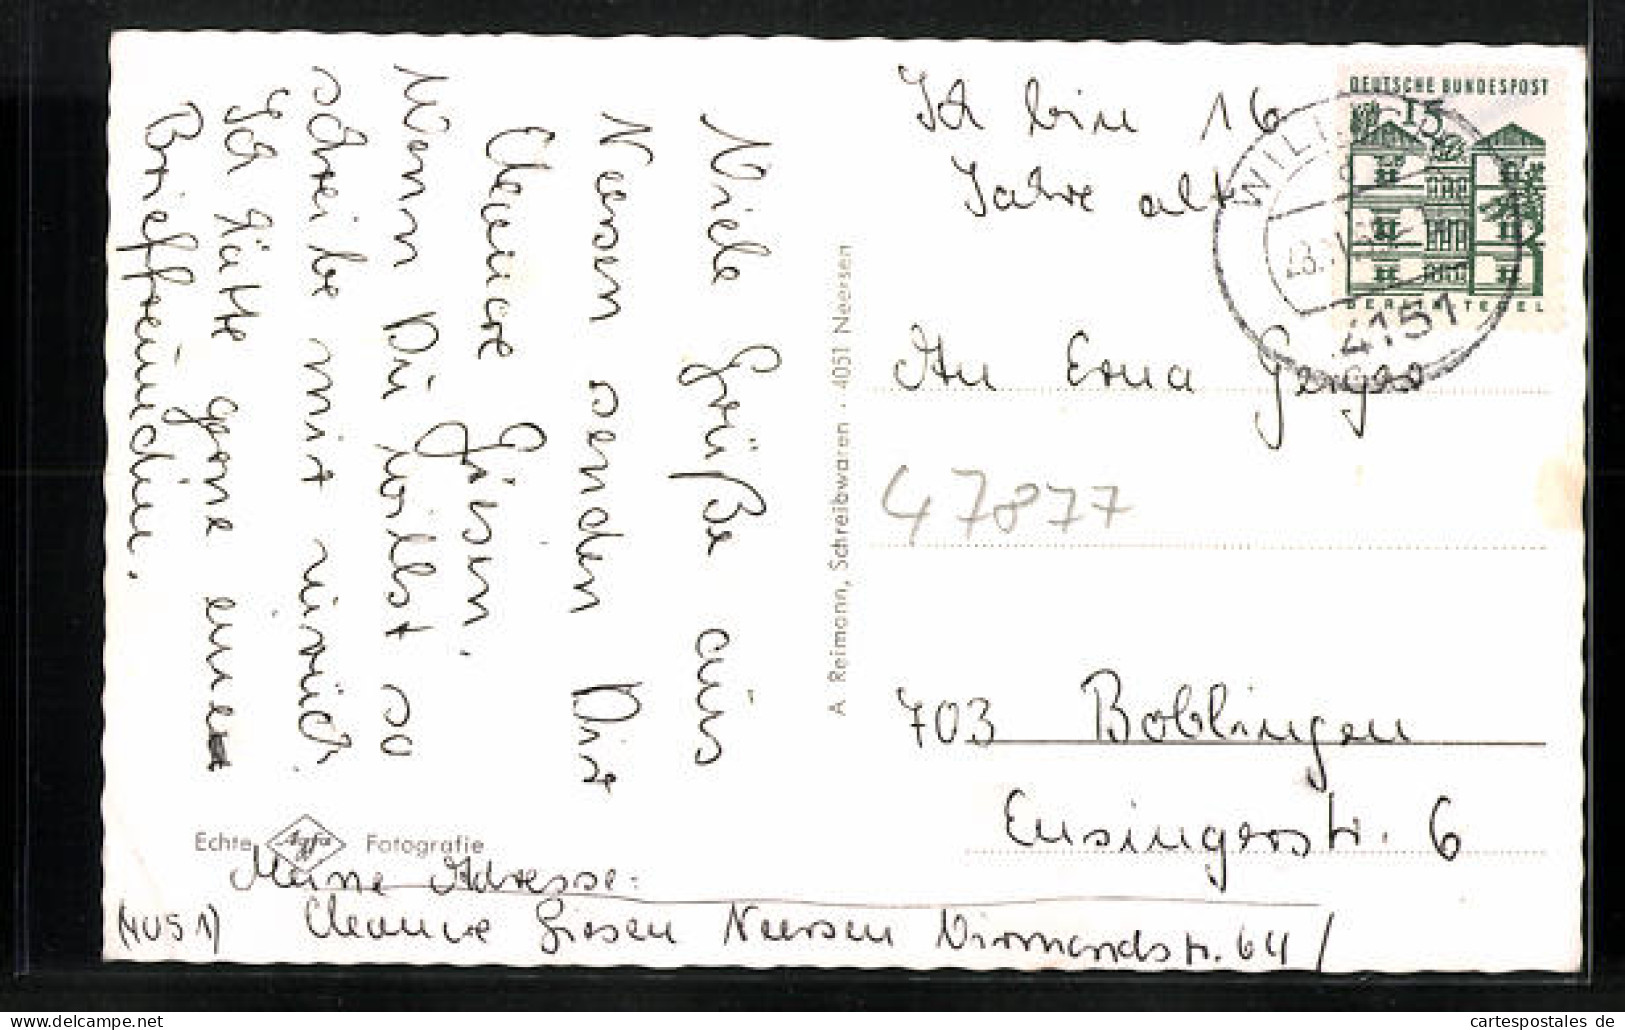 Viele Grüße aus
Neersen senden Dir
Giesen.
Wenn Du willst so
schreibe mir zurück
Ich hätte gerne eine
Brieffreundin.
Ich bin 16
Jahre alt
DEUTSCHE BUNDESPOST
15
BERLIN TEGEL
4151
An Erna
47877
703 Böblingen
Ensingerstr. 6
A Reimann, Schreibwaren · 4051 Neersen
Echte Agfa Fotografie
Meine Adresse:
Giesen Neersen Virmondstr. 64 /
(4051)
cartespostales de